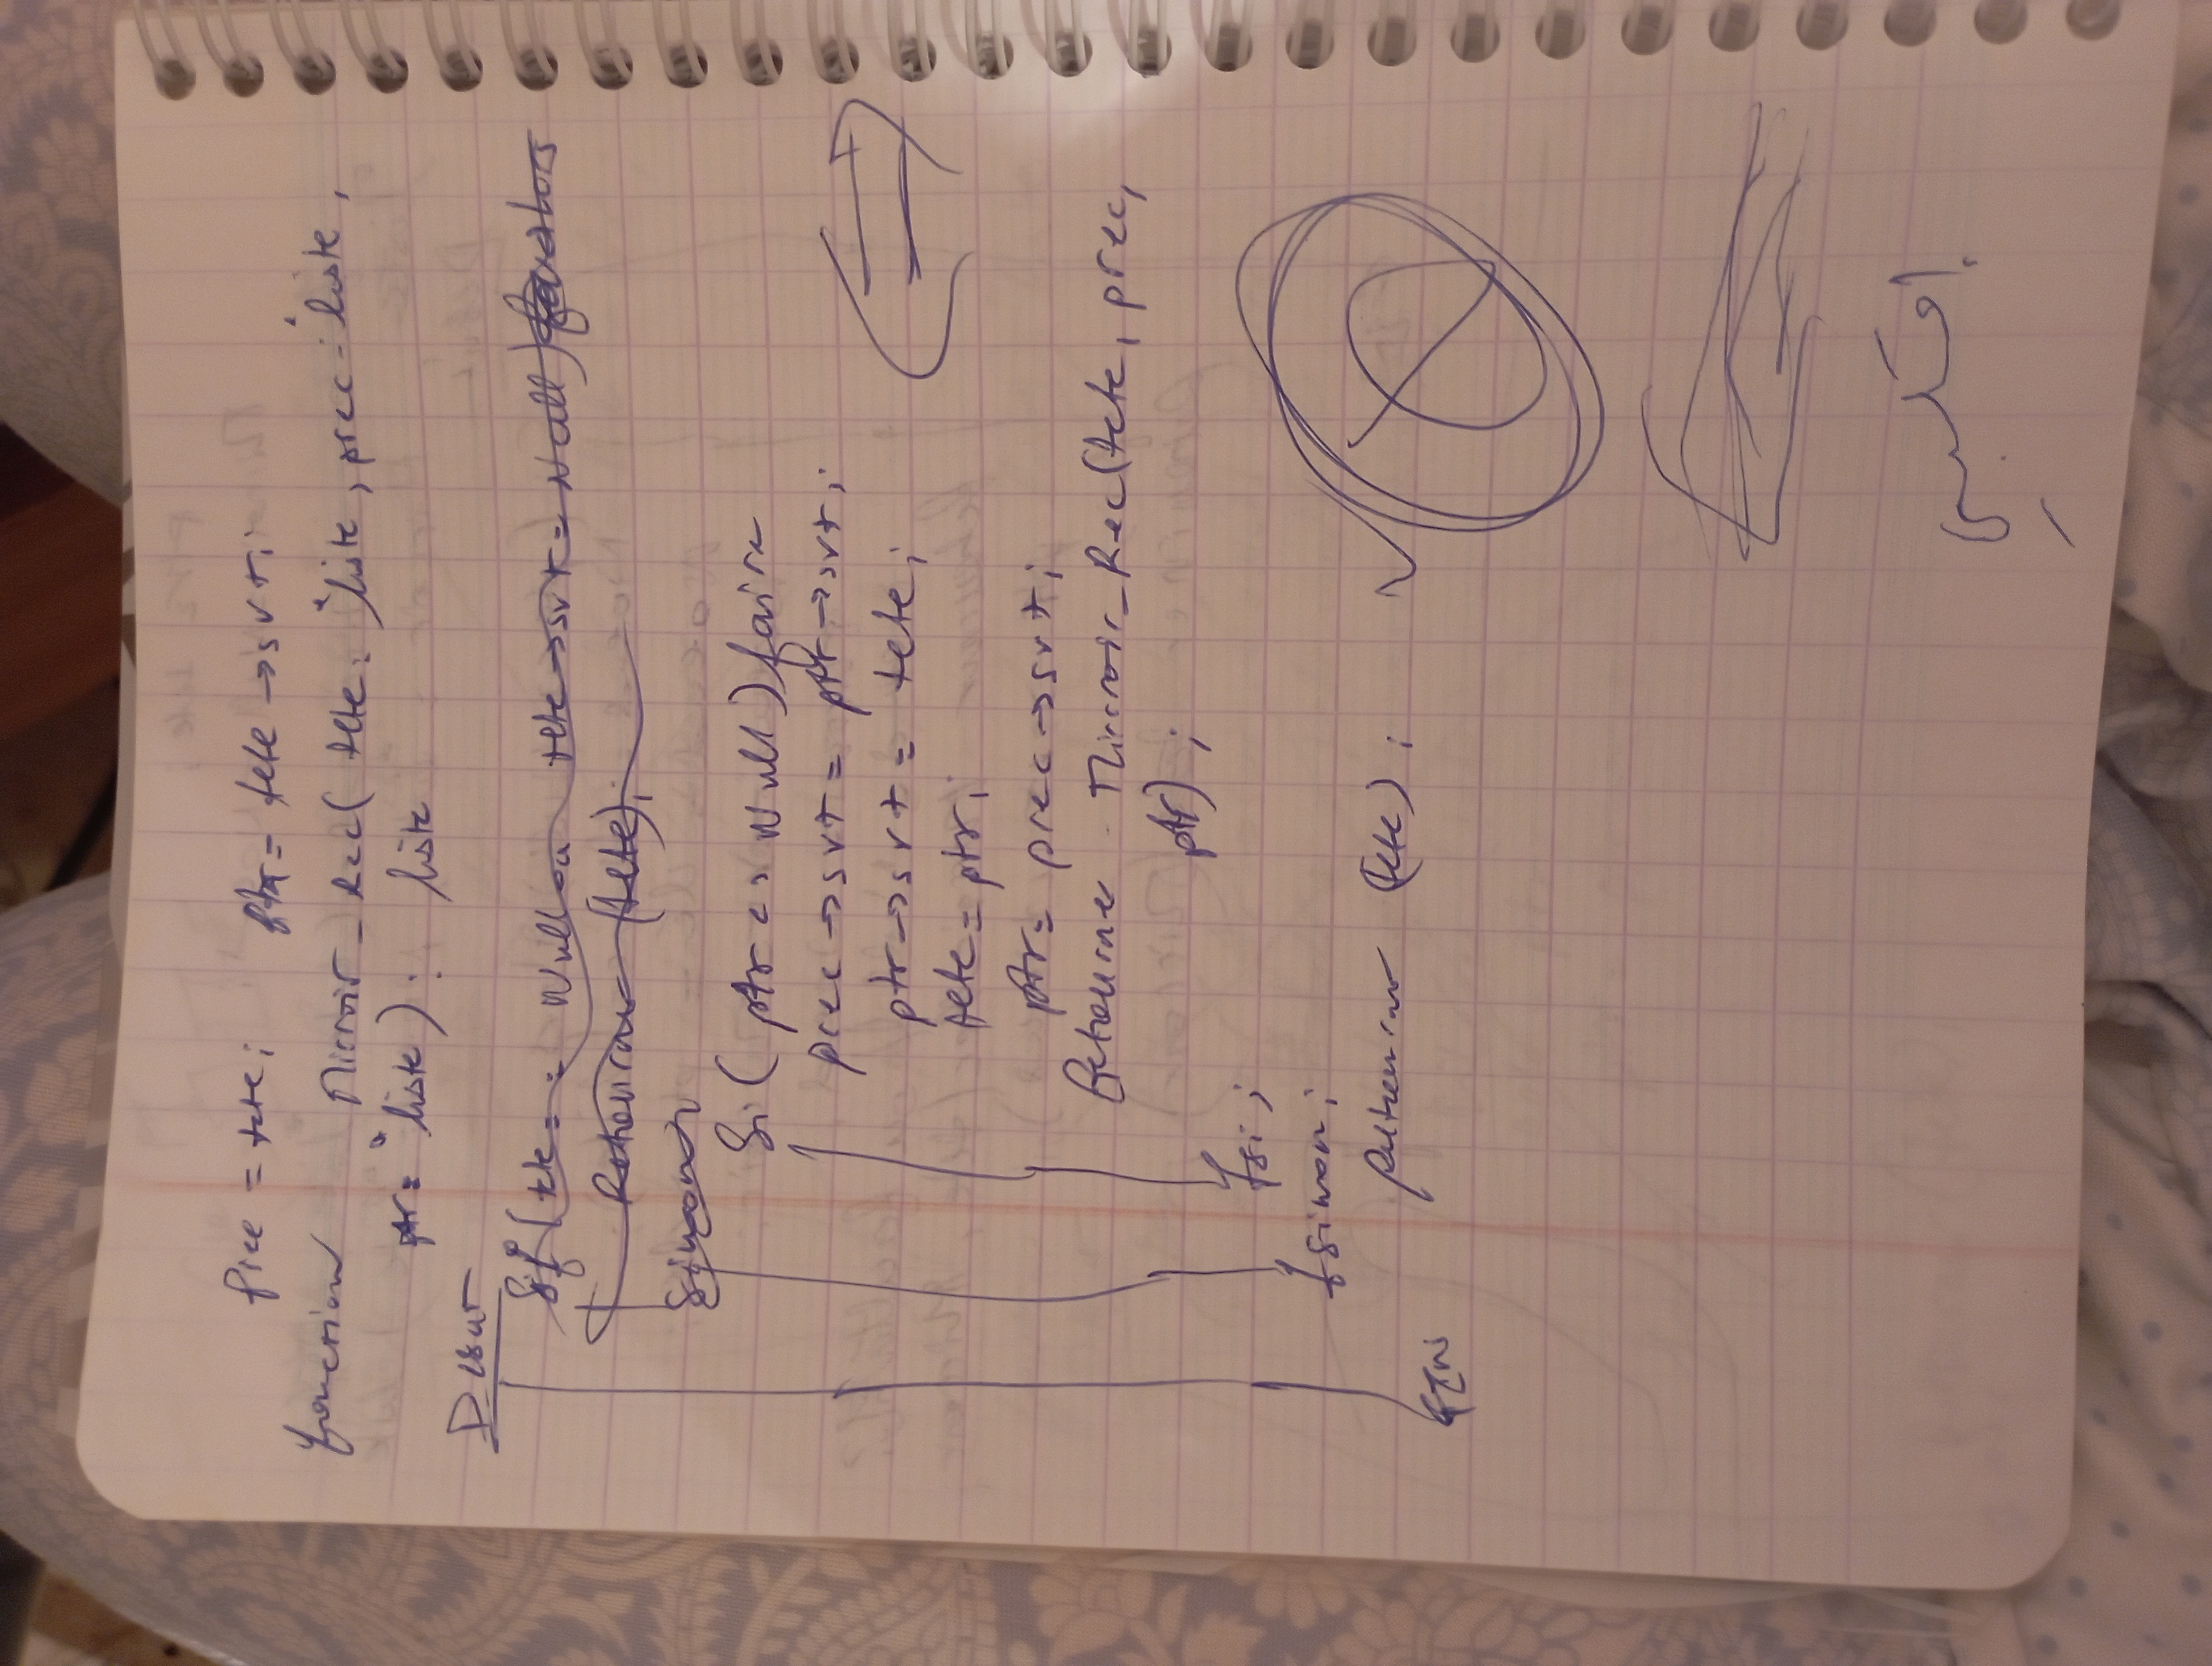 prec = tete; ptr = tete → svt;
fonction Mirroir_Rec(tete: *liste, prec: *liste,
ptr= *liste): liste
Début
Si (tete = Null ou tete→svt = Null) alors
Retourne (tete);
Sinon
Si (ptr <> Null) faire
prec → svt = ptr → svt;
ptr → svt = tete;
tete = ptr;
ptr = prec → svt;
Retourne Mirroir_Rec(tete, prec,
ptr);
fsi;
fsinon;
Retourne (tete);
FIN